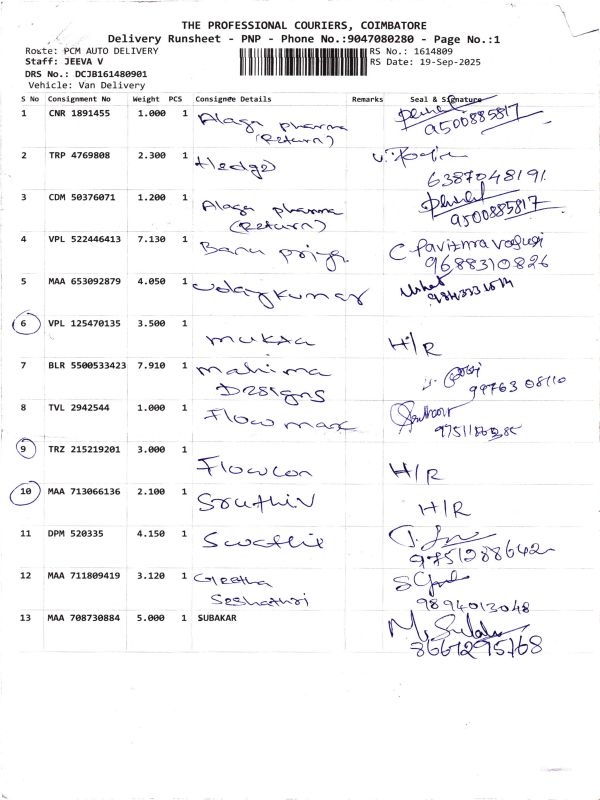 THE PROFESSIONAL COURIERS, COIMBATORE
Delivery Runsheet - PNP - Phone No.:9047080280 - Page No.:1
Route: PCM AUTO DELIVERY RS No.: 1614809
Staff: JEEVA V RS Date: 19-Sep-2025
DRS No.: DCJB161480901
Vehicle: Van Delivery
S No Consignment No Weight PCS Consignee Details Remarks Seal & Signature
1 CNR 1891455 1.000 1 Alaga pharma
(Return) 9500885817
2 TRP 4769808 2.300 1 Hedge
6387048191
3 CDM 50376071 1.200 1 Alaga pharma
(Return) 9500885817
4 VPL 522446413 7.130 1 Banu priya C Pavithra
9688310826
5 MAA 653092879 4.050 1 Udaykumar
6 VPL 125470135 3.500 1
mukta H/R
7 BLR 5500533423 7.910 1 mahima
Designs 99763 08110
8 TVL 2942544 1.000 1 Flow max
9 TRZ 215219201 3.000 1
Flowcon H/R
10 MAA 713066136 2.100 1 Sruthi V H/R
11 DPM 520335 4.150 1 Swathi
9751288642
12 MAA 711809419 3.120 1 Geetha
Seshathri 9894013048
13 MAA 708730884 5.000 1 SUBAKAR
8667295768